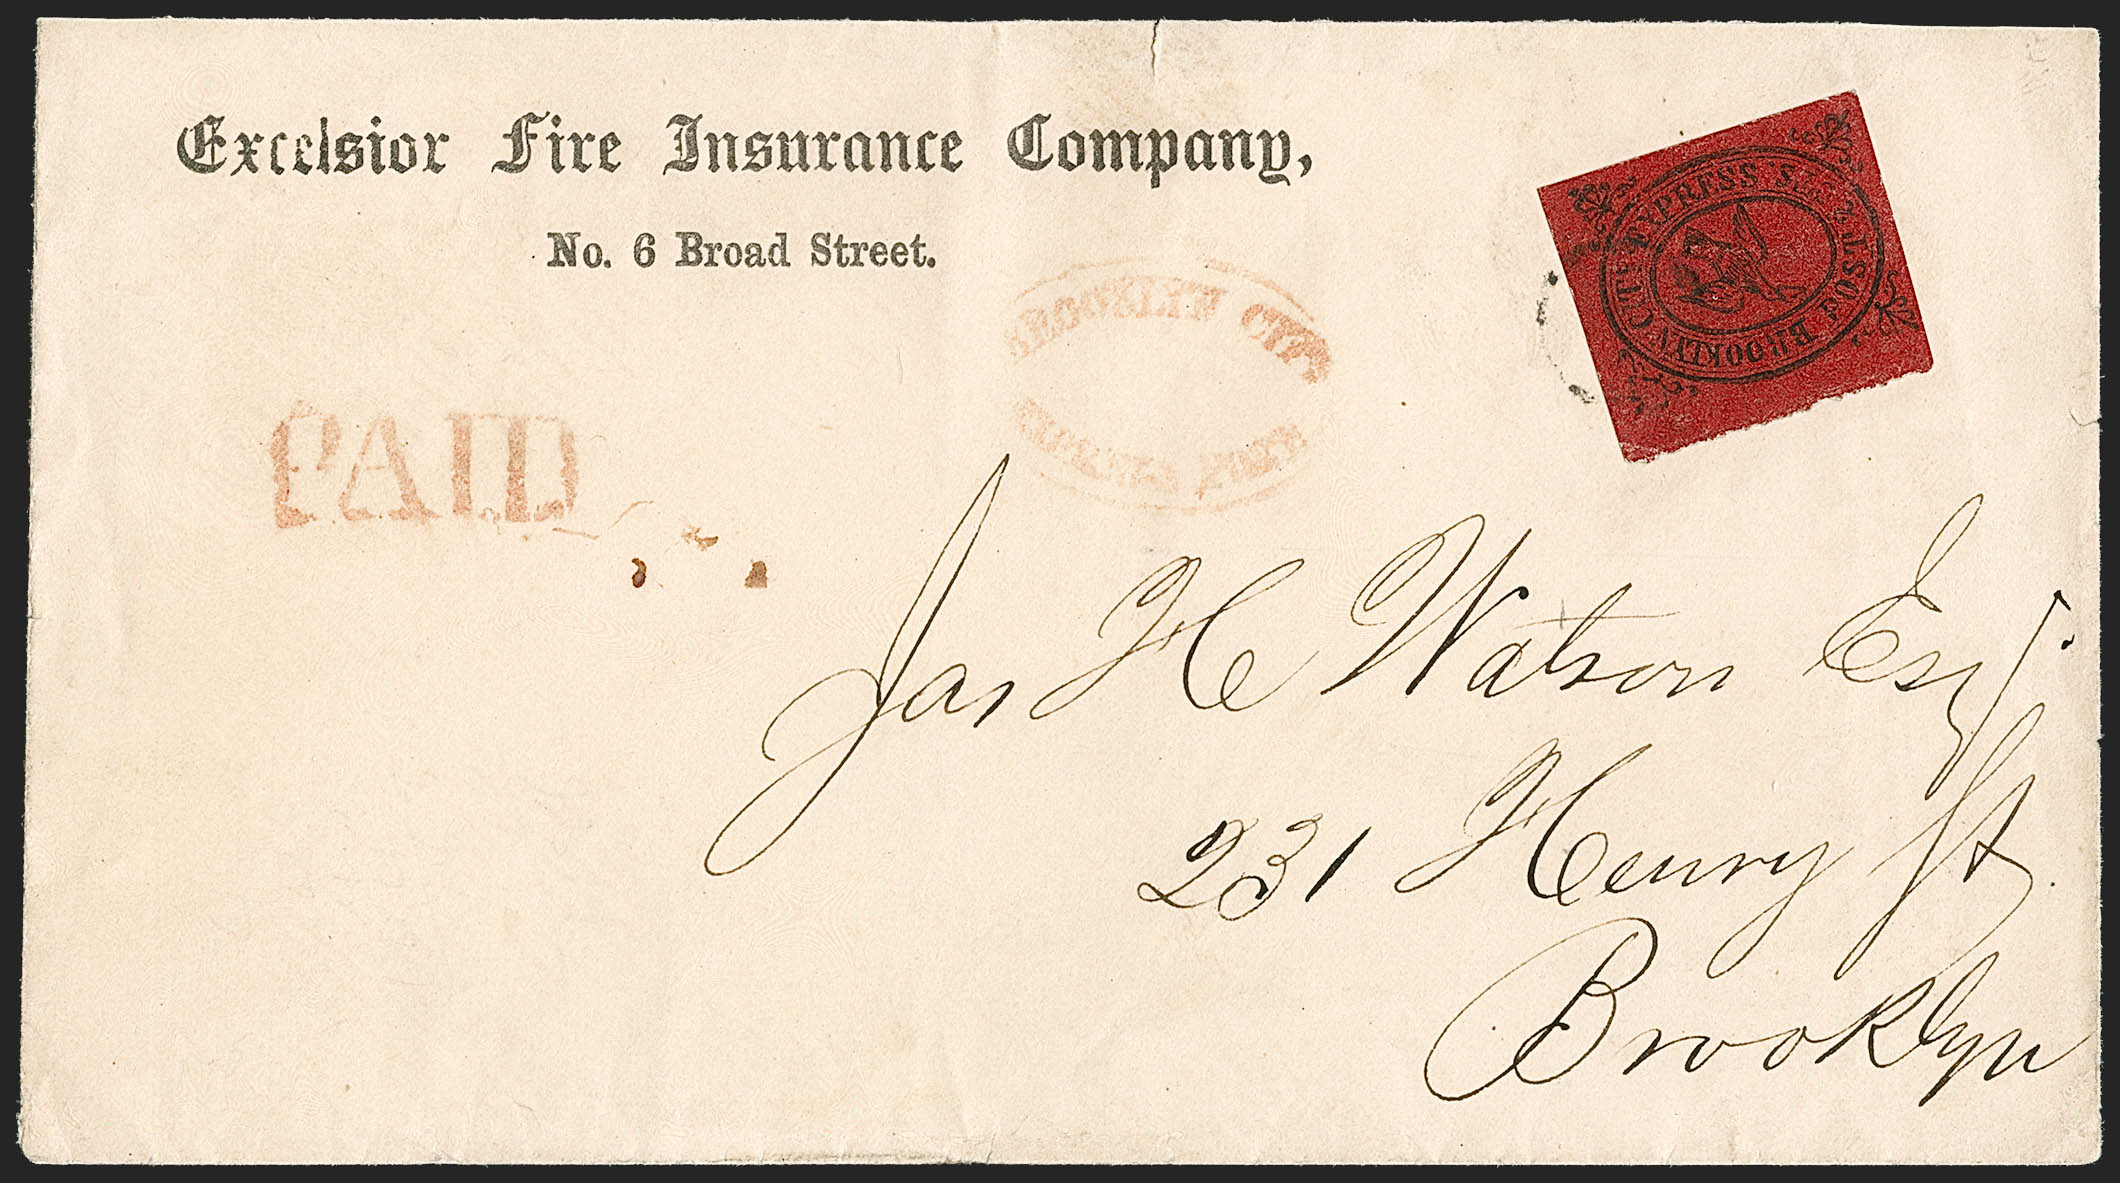 Excelsior Fire Insurance Company,
No. 6 Broad Street.
BROOKLYN CITY EXPRESS POST
BROOKLYN CITY
EXPRESS POST
PAID
Jas H Watson Esq.
231 Henry St
Brooklyn